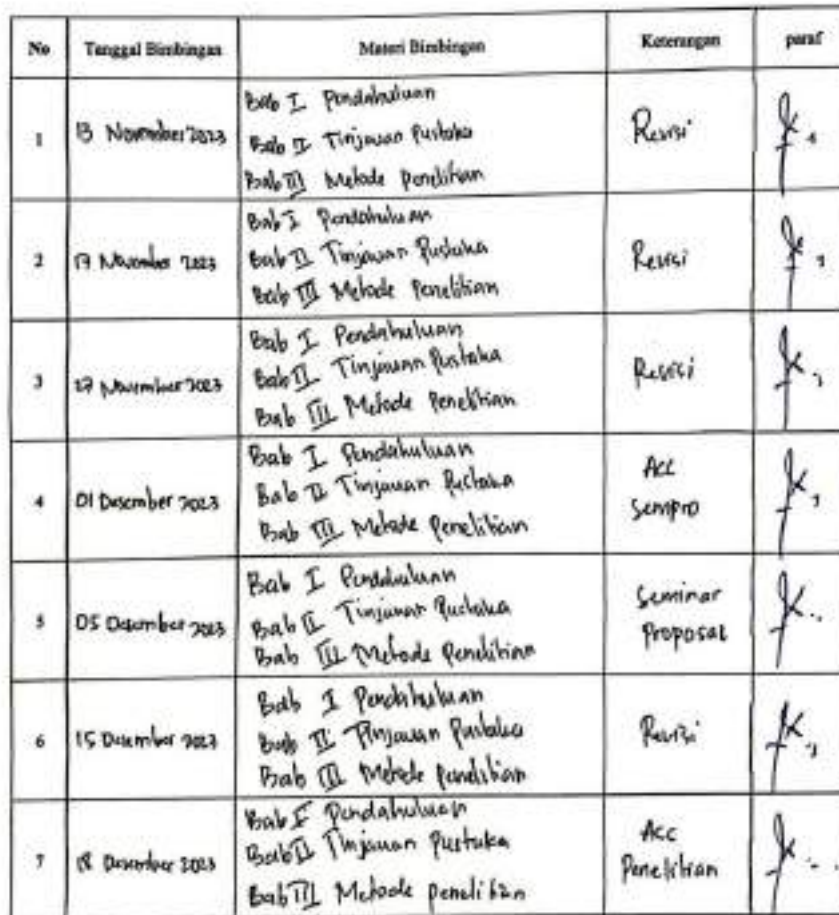 No Tanggal Bimbingan Materi Bimbingan Keterangan paraf
1 13 November 2023 Bab I Pendahuluan Revisi
Bab II Tinjauan Pustaka
Bab III Metode Penelitian
2 17 November 2023 Bab I Pendahuluan Revisi
Bab II Tinjauan Pustaka
Bab III Metode Penelitian
3 27 November 2023 Bab I Pendahuluan Revisi
Bab II Tinjauan Pustaka
Bab III Metode Penelitian
4 01 Desember 2023 Bab I Pendahuluan Acc
Bab II Tinjauan Pustaka Sempro
Bab III Metode Penelitian
5 05 Desember 2023 Bab I Pendahuluan Seminar
Bab II Tinjauan Pustaka Proposal
Bab III Metode Penelitian
6 15 Desember 2023 Bab I Pendahuluan Revisi
Bab II Tinjauan Pustaka
Bab III Metode Penelitian
7 18 Desember 2023 Bab I Pendahuluan Acc
Bab II Tinjauan Pustaka Penelitian
Bab III Metode Penelitian